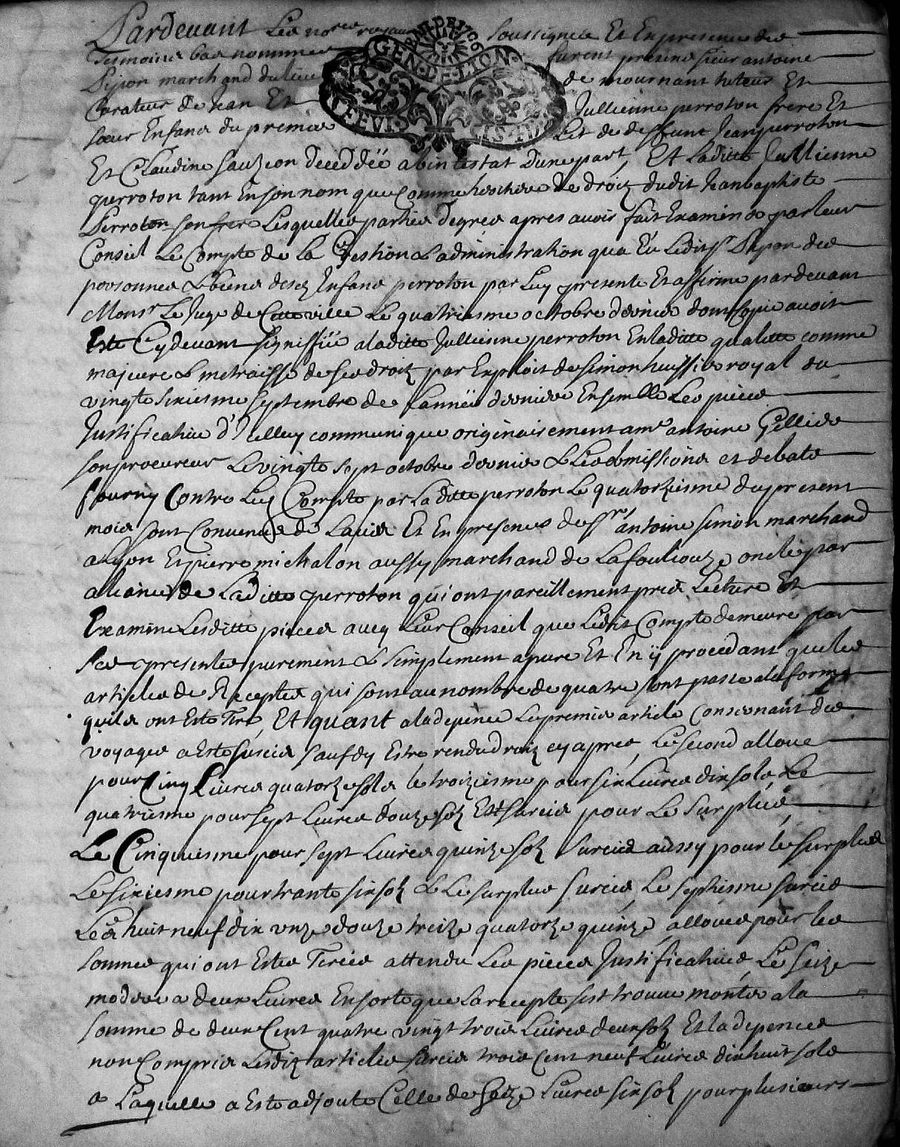 Pardevant Les no.res royaux soussignes Et En presence des
Tesmoins bas nommes furent presens sieur antoine
Dijon marchand du lieu de mournant tuteur Et
Curateur de Jean Et Jullienne perroton frere Et
soeur Enfans du premier Lit de deffunt Jean perroton
Et Claudine sauzion decedée abintestat Dune part, Et Laditte Jullienne
perroton tant En son nom que Comme heritiere de droit dudit Jean baptiste
Perroton son frere Lesquelles parties degres apres avoir fait Examiner par leur
Conseil Le Compte de La Gestion & administration qua Eu Ledit sr Dijon des
personnes & biens desd Enfans perroton par Luy presenté Et affirmé pardevant
Monsr Le Juge de Cette ville Le quatriesme octobre dernier dont Copie avoit
Esté Cydevant signiffiée a laditte Jullienne perroton En laditte qualitte comme
majeure & metraisse de ses droits par Exploit de simon huissier royal du
vingte sixiesme septembre de Lannëe derniere Ensemble Les pieces
Justificatives d'Icelluy communiqué originairement a me antoine Gellier
son procureur Le vingte sept octobre dernier & Les obmissions et debats
fourny Contre Led Compte par Laditte perroton Le quatorziesme du present
mois sont Convenües de Lavis Et En presence du sr antoine simon marchand
a Lyon Et pierre michalon aussy marchand de La fouliouze oncle par
alliance de Laditte perroton qui ont pareillement pris Lecture Et
Examiné Lesditte pieces avec Leur Conseil que Ledit Compte demeure par
Ses presentes purement & simplement apuré Et En y procedant que les
articles de Recepte qui sont au nombre de quatre sont passé a la forme
quils ont Esté Tiré, Et quant a la depence Le premier article Concernant des
voyages a Esté surcis sauf dy Estre rendu droit cy apres, Le second alloué
pour Cinq Livres quatorze sols Le troiziesme pour six Livres dix sols Le
quatriesme pour sept Livres douze sols Et surcis pour Le surplus
Le Cinquiesme pour sept Livres quinze sols surcis aussy pour le surplus
Le sixiesme pour trante six sols & Le surplus surcis Le septiesme surcis
Les huit neuf dix unze douze treize quatorze quinze, alloues pour les
sommes qui ont Estes Tirées attendu Les pieces Justificatives Le seize
moderé a deux Livres En sorte que La recepte sest trouvé monter a la
somme de deux Cent quatre vingt trois Livres deux sols Et la depence
non Compris Lesdits articles surcis trois cent neuf Livres dix huit sols
a Laquelle a Esté adjouté Celle de seize Livres six sols pour plusieurs
GEN. DE LION